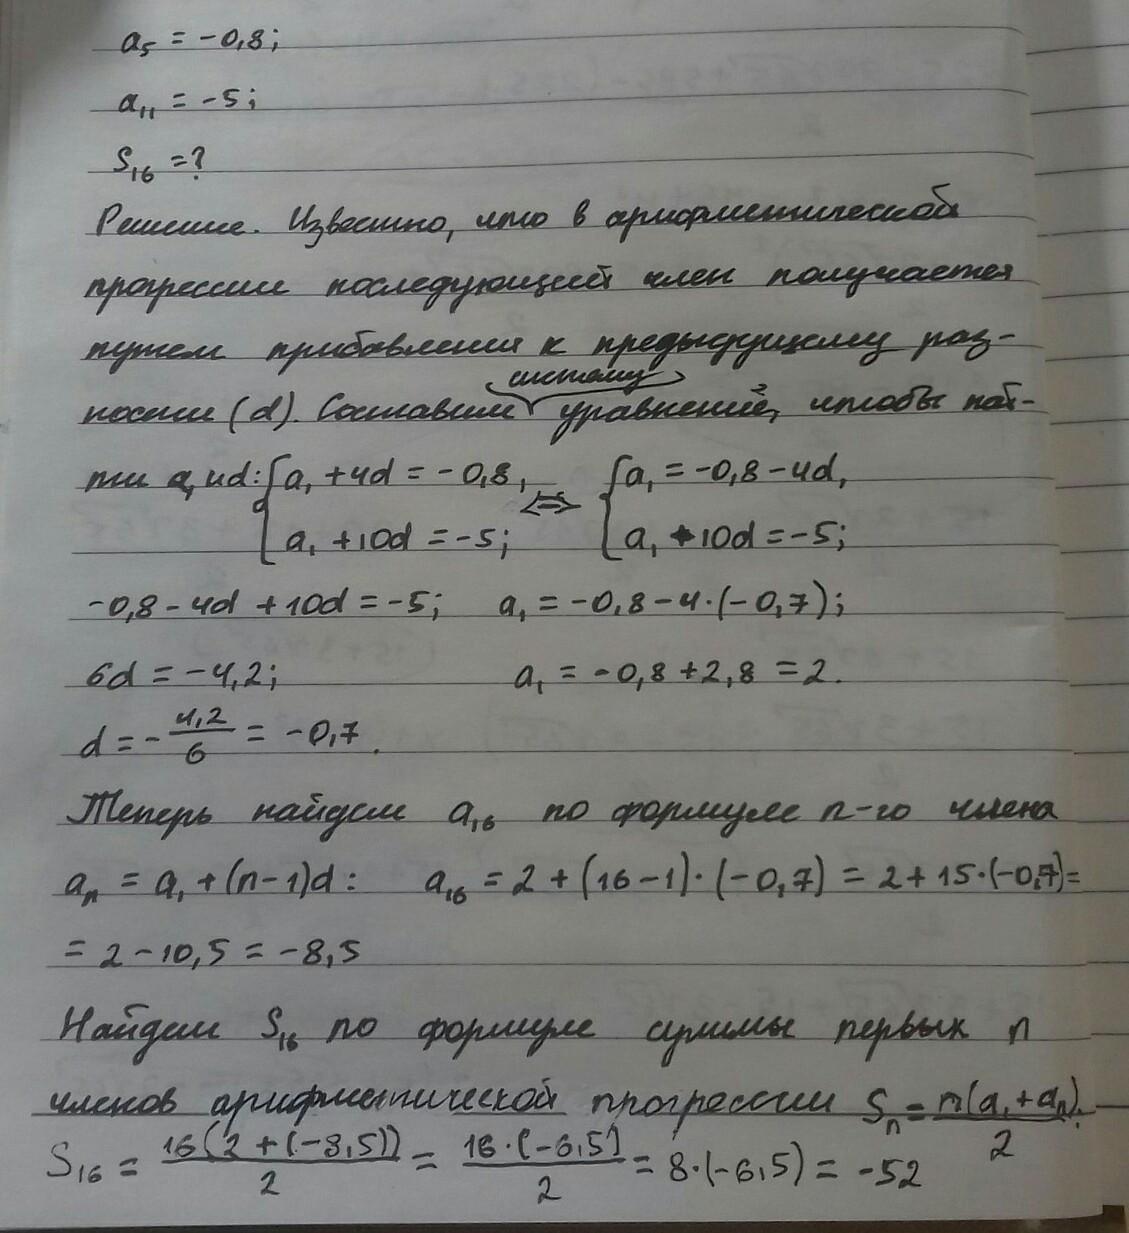 a₅ = -0,8;
a₁₁ = -5;
S₁₆ = ?
Решение. Известно, что в арифметической
прогрессии последующий член получается
путем прибавления к предыдущему раз-
ности (d). Составим систему уравнений, чтобы най-
ти a₁ и d: { a₁ + 4d = -0,8, ⇔ { a₁ = -0,8 - 4d,
a₁ + 10d = -5; a₁ + 10d = -5;
-0,8 - 4d + 10d = -5; a₁ = -0,8 - 4·(-0,7);
6d = -4,2; a₁ = -0,8 + 2,8 = 2.
d = - 4,2/6 = -0,7.
Теперь найдем a₁₆ по формуле n-го члена
aₙ = a₁ + (n-1)d: a₁₆ = 2 + (16-1)·(-0,7) = 2 + 15·(-0,7) =
= 2 - 10,5 = -8,5
Найдем S₁₆ по формуле суммы первых n
членов арифметической прогрессии Sₙ = n(a₁ + aₙ)/2:
S₁₆ = 16(2 + (-8,5))/2 = 16·(-6,5)/2 = 8·(-6,5) = -52